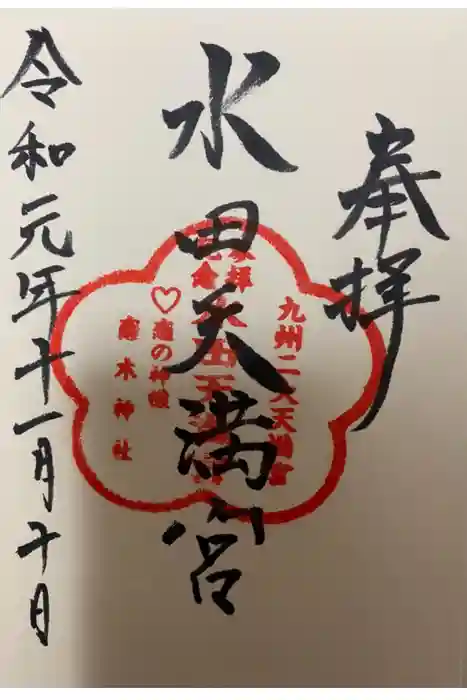 奉拝
水田天満宮
令和元年十一月十日
九州二大天満宮
♡恋の神様
恋木神社